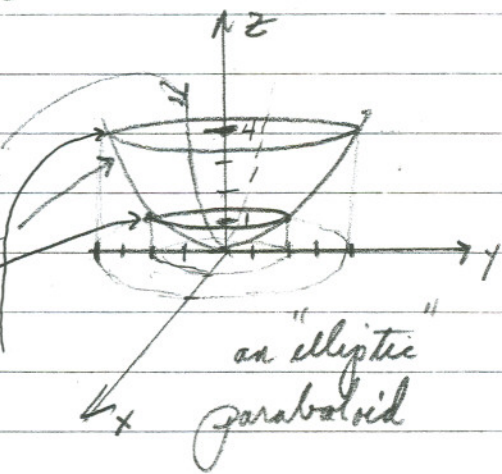 z
4
1
y
an "elliptic"
paraboloid
x